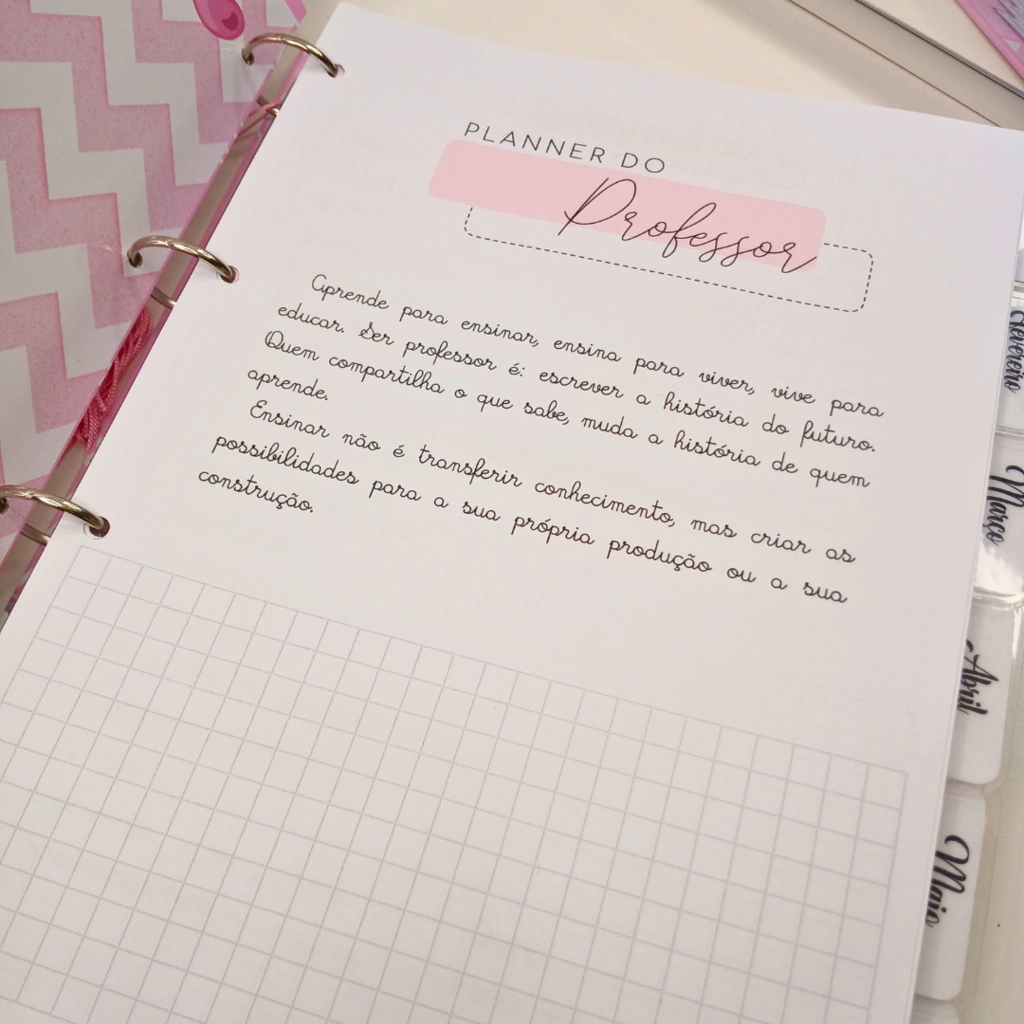 PLANNER DO
Professor
Aprende para ensinar, ensina para viver, vive para
educar. Ser professor é: escrever a história do futuro.
Quem compartilha o que sabe, muda a história de quem
aprende.
Ensinar não é transferir conhecimento, mas criar as
possibilidades para a sua própria produção ou a sua
construção.
Fevereiro
Março
Abril
Maio